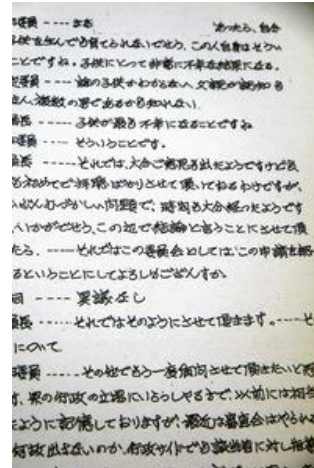 委員 ---- まあ あったら、自分
子供を生んでも育てられないでせう、この人自身はそうい
ことですね。子供にとって非常に不幸な結果になる。
委員 ---- 誰の子供かわからない、父親が認知も
ない、複数の男であるかも知れない。
員長 ---- 子供が最も不幸になることですね
委員 ---- そういうことです。
員長 ---- それでは、大分ご意見も出たようですけども、
も初めてで拝聴ばかりさせて頂いてるわけですが、
むづかしい問題で、時間も大分経ったようです
いかがでせう、この辺で結論と言うことにさせて頂
たら、---- それではこの委員会としては、この申請を
るということにしてよろしうございますか。
同 ---- 異議なし
員長 ---- それではそのようにさせて頂きます。---- そ
について
委員 ---- その他でもう一度質問させて頂きたいと思
す、県の行政の立場にいらっしゃる方で、以前には相当
たように記憶しておりますが、最近は審査会はやられ
何故出さないのか、行政サイドでも該当者に対し指